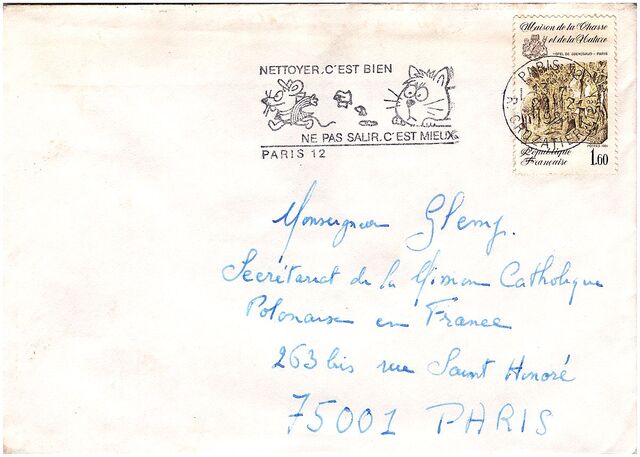 Maison de la Chasse
et de la Nature
HOTEL DE GUENEGAUD - PARIS
NETTOYER.C'EST BIEN
NE PAS SALIR.C'EST MIEUX
PARIS 12
PARIS
République
Française
1.60
Monseigneur Glemp.
Secrétariat de la Mission Catholique
Polonaise en France
263 bis rue Saint Honoré
75001 PARIS